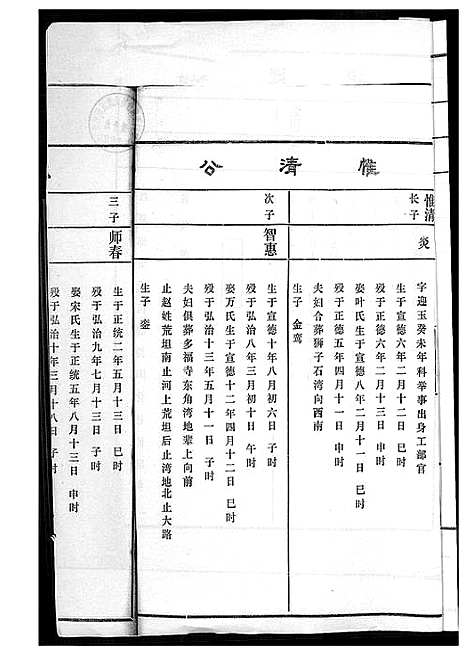 惟清公
惟清
长子 炎
字迎玉癸未年科举事出身工部官
生于宣德六年二月十二日 巳时
殁于正德六年二月十三日 申时
娶叶氏生于宣德八年二月十一日 巳时
殁于正德五年四月十一日 申时
夫妇合葬狮子石湾向西南
生子 金鸾
次子 智惠
生于宣德十年八月初六日 子时
殁于弘治八年三月初十日 午时
娶万氏生于宣德十二年四月十二日 巳时
殁于弘治十三年五月十一日 子时
夫妇俱葬多福寺东角湾地辈上向前
止赵姓荒坦南止河上荒坦后止湾地北止大路
生子 銮
三子 师春
生于正统二年五月十三日 巳时
殁于弘治九年七月十三日 子时
娶宋氏生于正统五年八月十三日 申时
殁于弘治十年三月十八日 子时